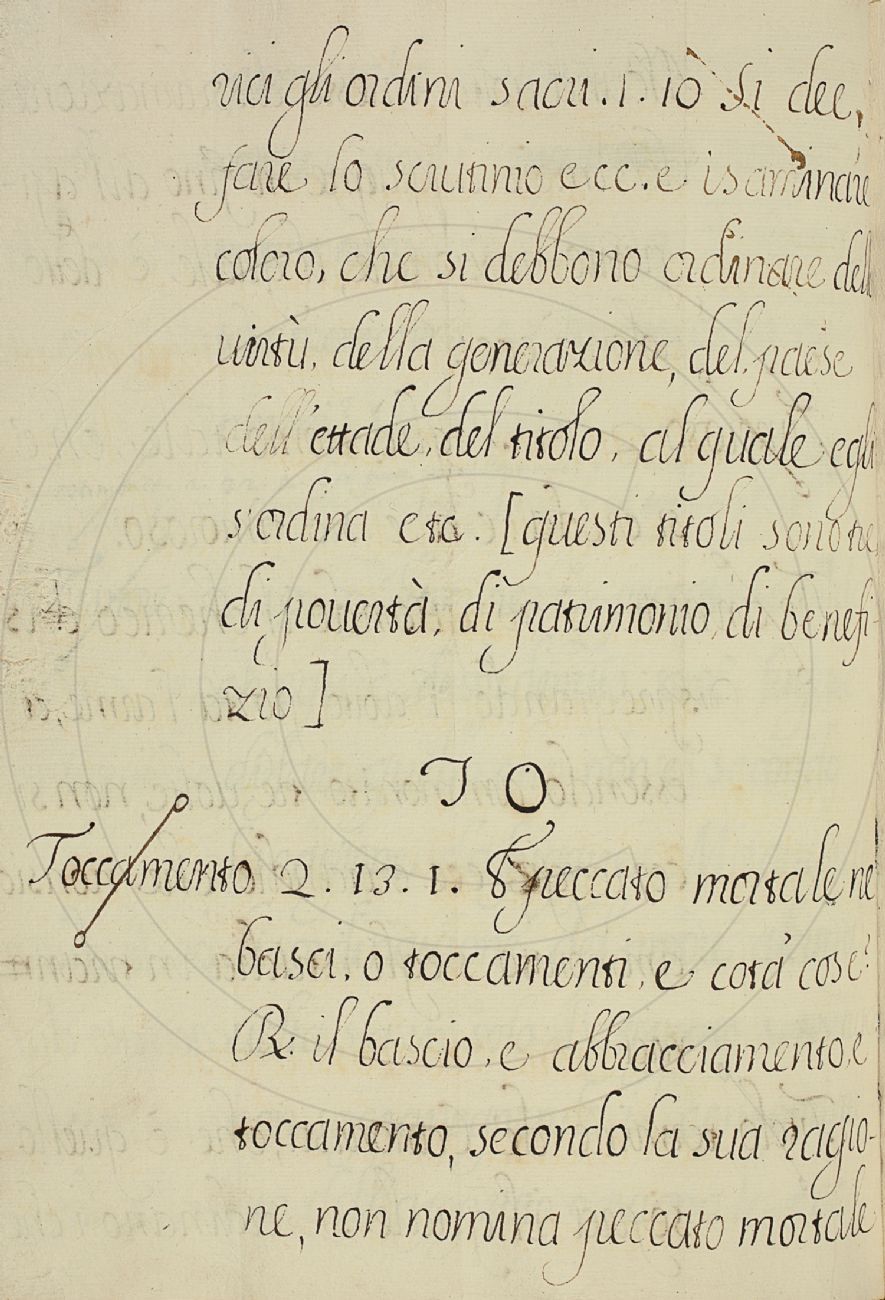 vici gli ordini sacri. 1. 10 Si dee,
fare lo scrutinio ecc. e isaminare
coloro, che si debbono ordinare dell
uirtù, della generazione, del paese
dell'ettade, del titolo, al quale egli
s'ordina etc. [questi titoli sono tre
di pouertà, di patrimonio, di benefi-
zio]
TO
Toccamento 2. 13. 1. peccato mortale ne
basci, o toccamenti, e cota' cose?
R. il bascio, e abbracciamento, e
toccamento, secondo la sua ragio-
ne, non nomina peccato mortale